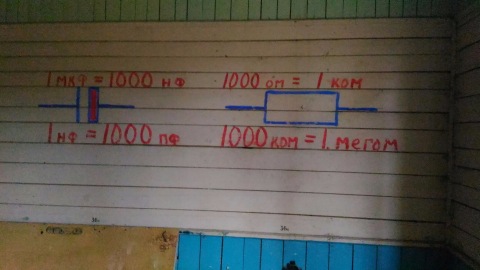 1 мкф = 1000 нф
1 нф = 1000 пф
1000 ом = 1 ком
1000 ком = 1. мегом